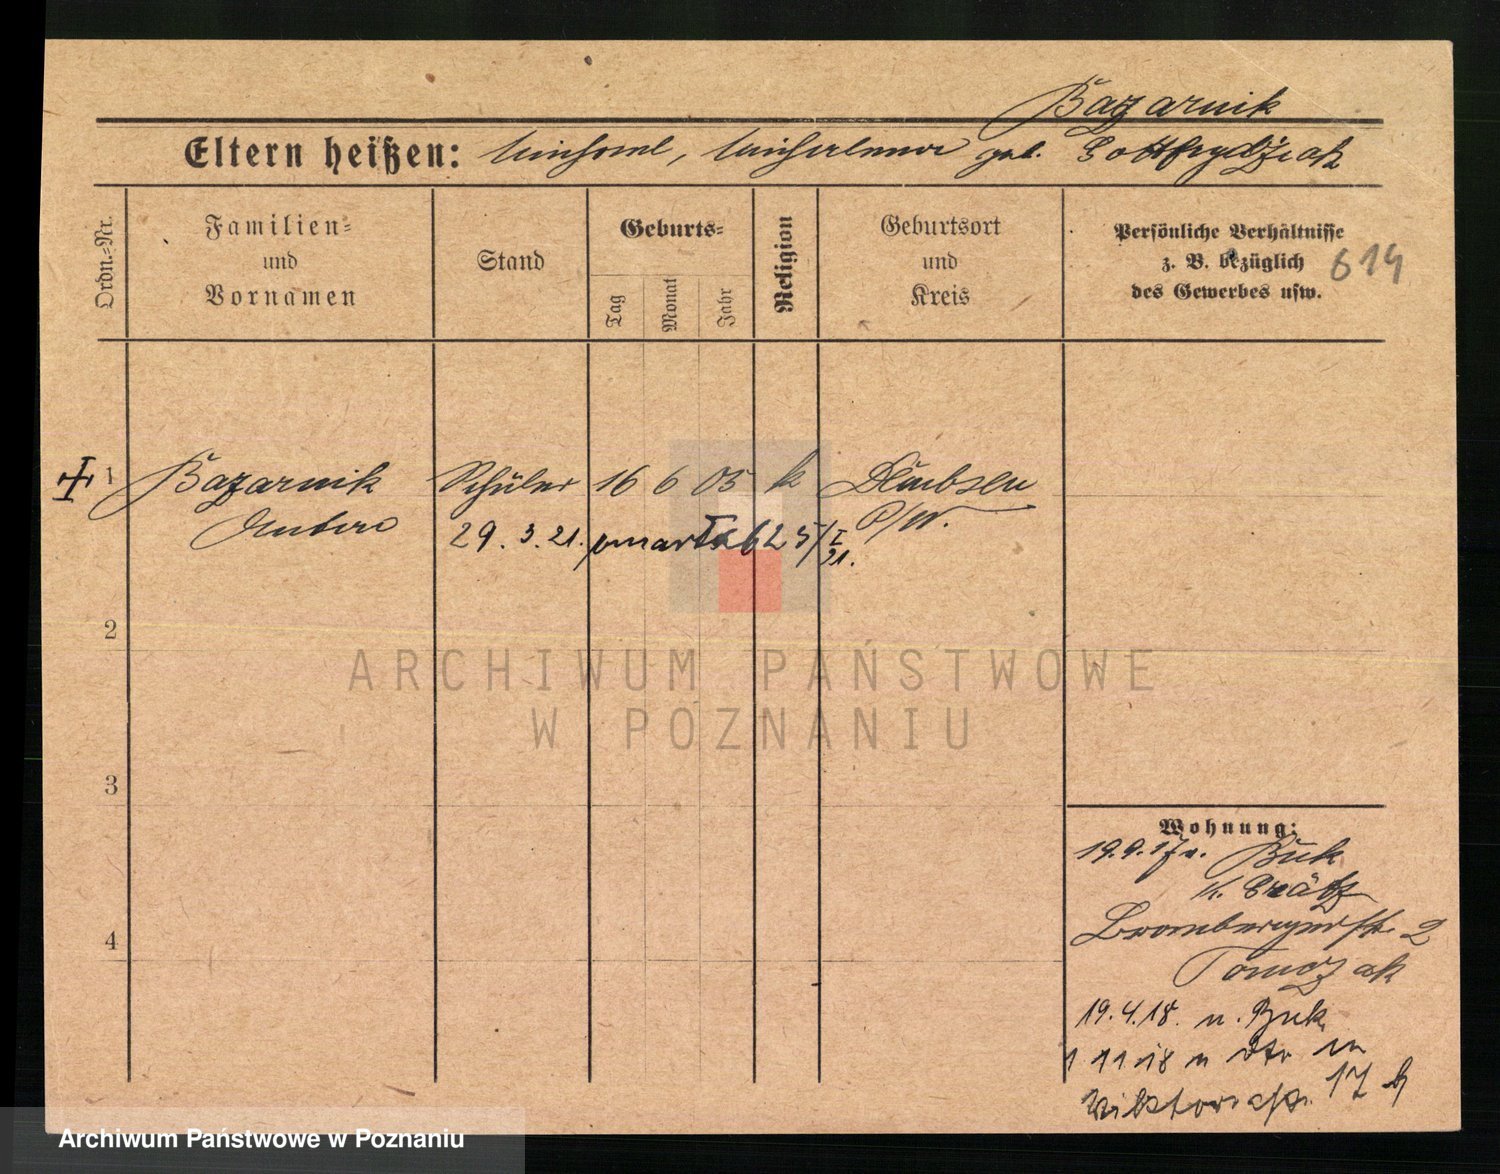 Bazarnik
Eltern heißen: Michael, geb. Gottfrydziak
Ordn.=Nr.
Familien=
und
Vornamen
Stand
Geburts=
Tag
Monat
Jahr
Religion
Geburtsort
und
Kreis
Persönliche Verhältnisse
z. B. bezüglich
des Gewerbes usw.
614
1 Bazarnik Schüler 16 6 05 k
P/W.
29. 3. 21. umarła 62 5/I
21.
2
ARCHIWUM PAŃSTWOWE
W POZNANIU
3
Wohnung:
19.9.17 v. Buk
k. Grätz
Brombergerstr. 2
Tomczak
4
19.4.18. n. Buk
1 11 18 n
Viktoriastr. 17
Archiwum Państwowe w Poznaniu